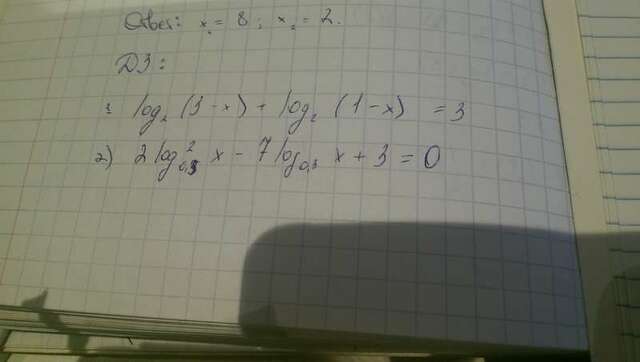 Ответ: x₁ = 8; x₂ = 2.
ДЗ:
1. log₂ (3-x) + log₂ (1-x) = 3
2) 2 log²₀,₃ x - 7 log₀,₃ x + 3 = 0